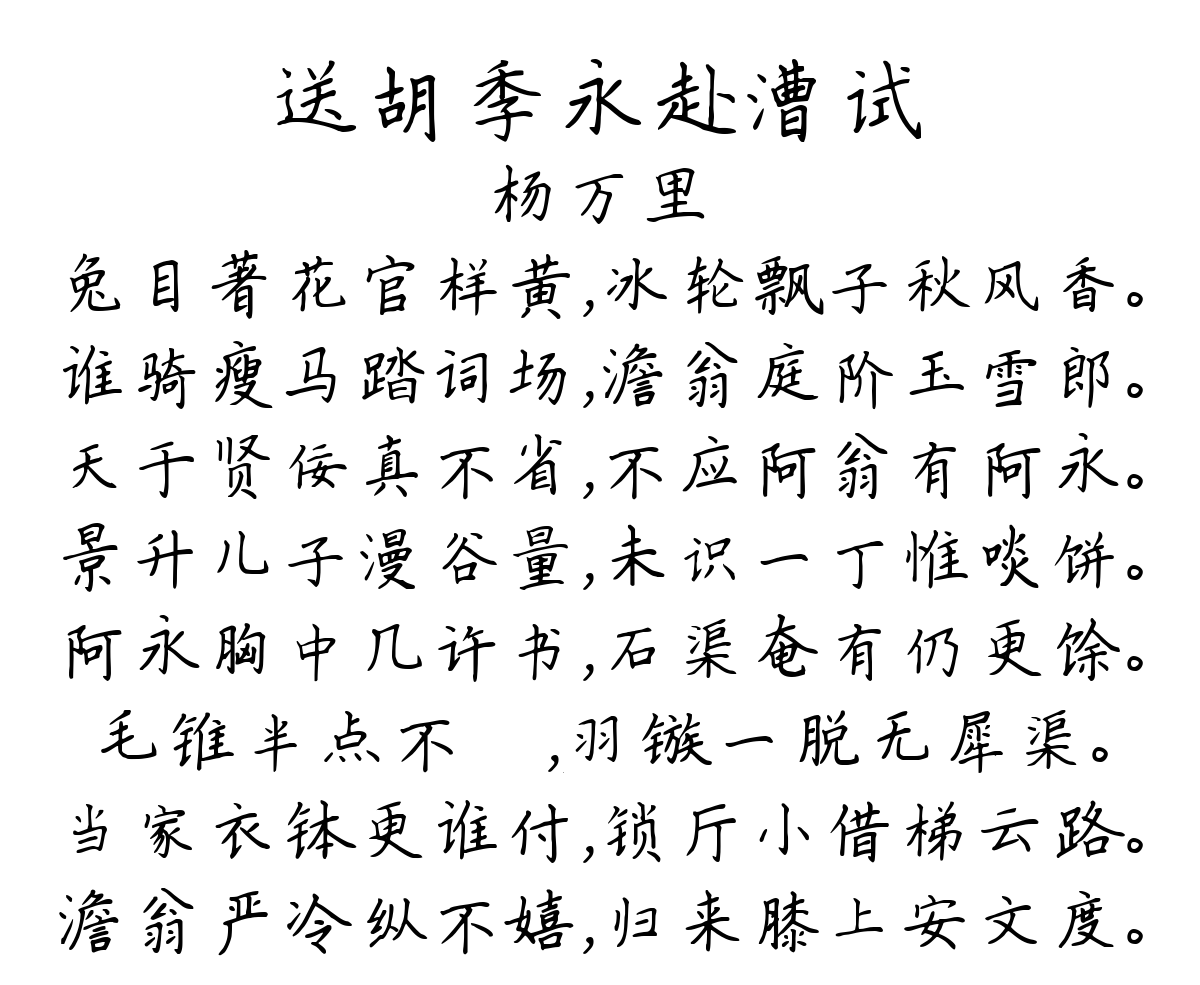 送胡季永赴漕试
杨万里
兔目著花官样黄,冰轮飘子秋风香。
谁骑瘦马踏词场,澹翁庭阶玉雪郎。
天于贤佞真不省,不应阿翁有阿永。
景升儿子漫谷量,未识一丁惟啖饼。
阿永胸中几许书,石渠奄有仍更馀。
毛锥半点不 ,羽镞一脱无犀渠。
当家衣钵更谁付,锁厅小借梯云路。
澹翁严冷纵不嬉,归来膝上安文度。